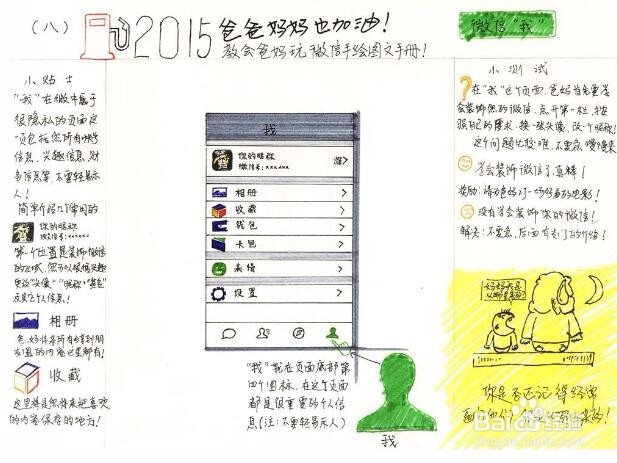 (八) 2015 爸爸妈妈也加油!
教会爸妈玩微信手绘图文手册!
微信"我"
小贴士
"我"在微信中属于
很隐私的页面这
页包括您所有帐号
信息、兴趣信息、财
务信息等,不要轻易示
人!
简单介绍几个常用的
你的昵称
微信号:xxxxxx
第一个位置是装饰微信
的区域,您可以根据兴趣
更改"头像""昵称"
及其它个人信息!
相册
收藏
这里将是您将来把喜欢
的内容保存的地方!
我
你的昵称
微信号:xxxxxx
相册
收藏
钱包
卡包
表情
设置
"我"我在页面底部第
四个图标,在这个页面
都是很重要的个人信
息(注:不要轻易示人)
我
小测试
?在"我"这个页面,爸妈首先要学
会装饰您的微信,点开第一栏,按
照自己的需求,换一张头像,改一个昵称!
这个问题比较难,不要急,慢慢来
学会装饰微信了,真棒!
奖励:请爸爸妈妈看一场好看的电影!
没有学会装饰你的微信!
解决:不要急,后面有专门的介绍!
妈妈我是
从哪里来的?
你是否还记得经常
Bai 百度经验
jingyan.baidu.com